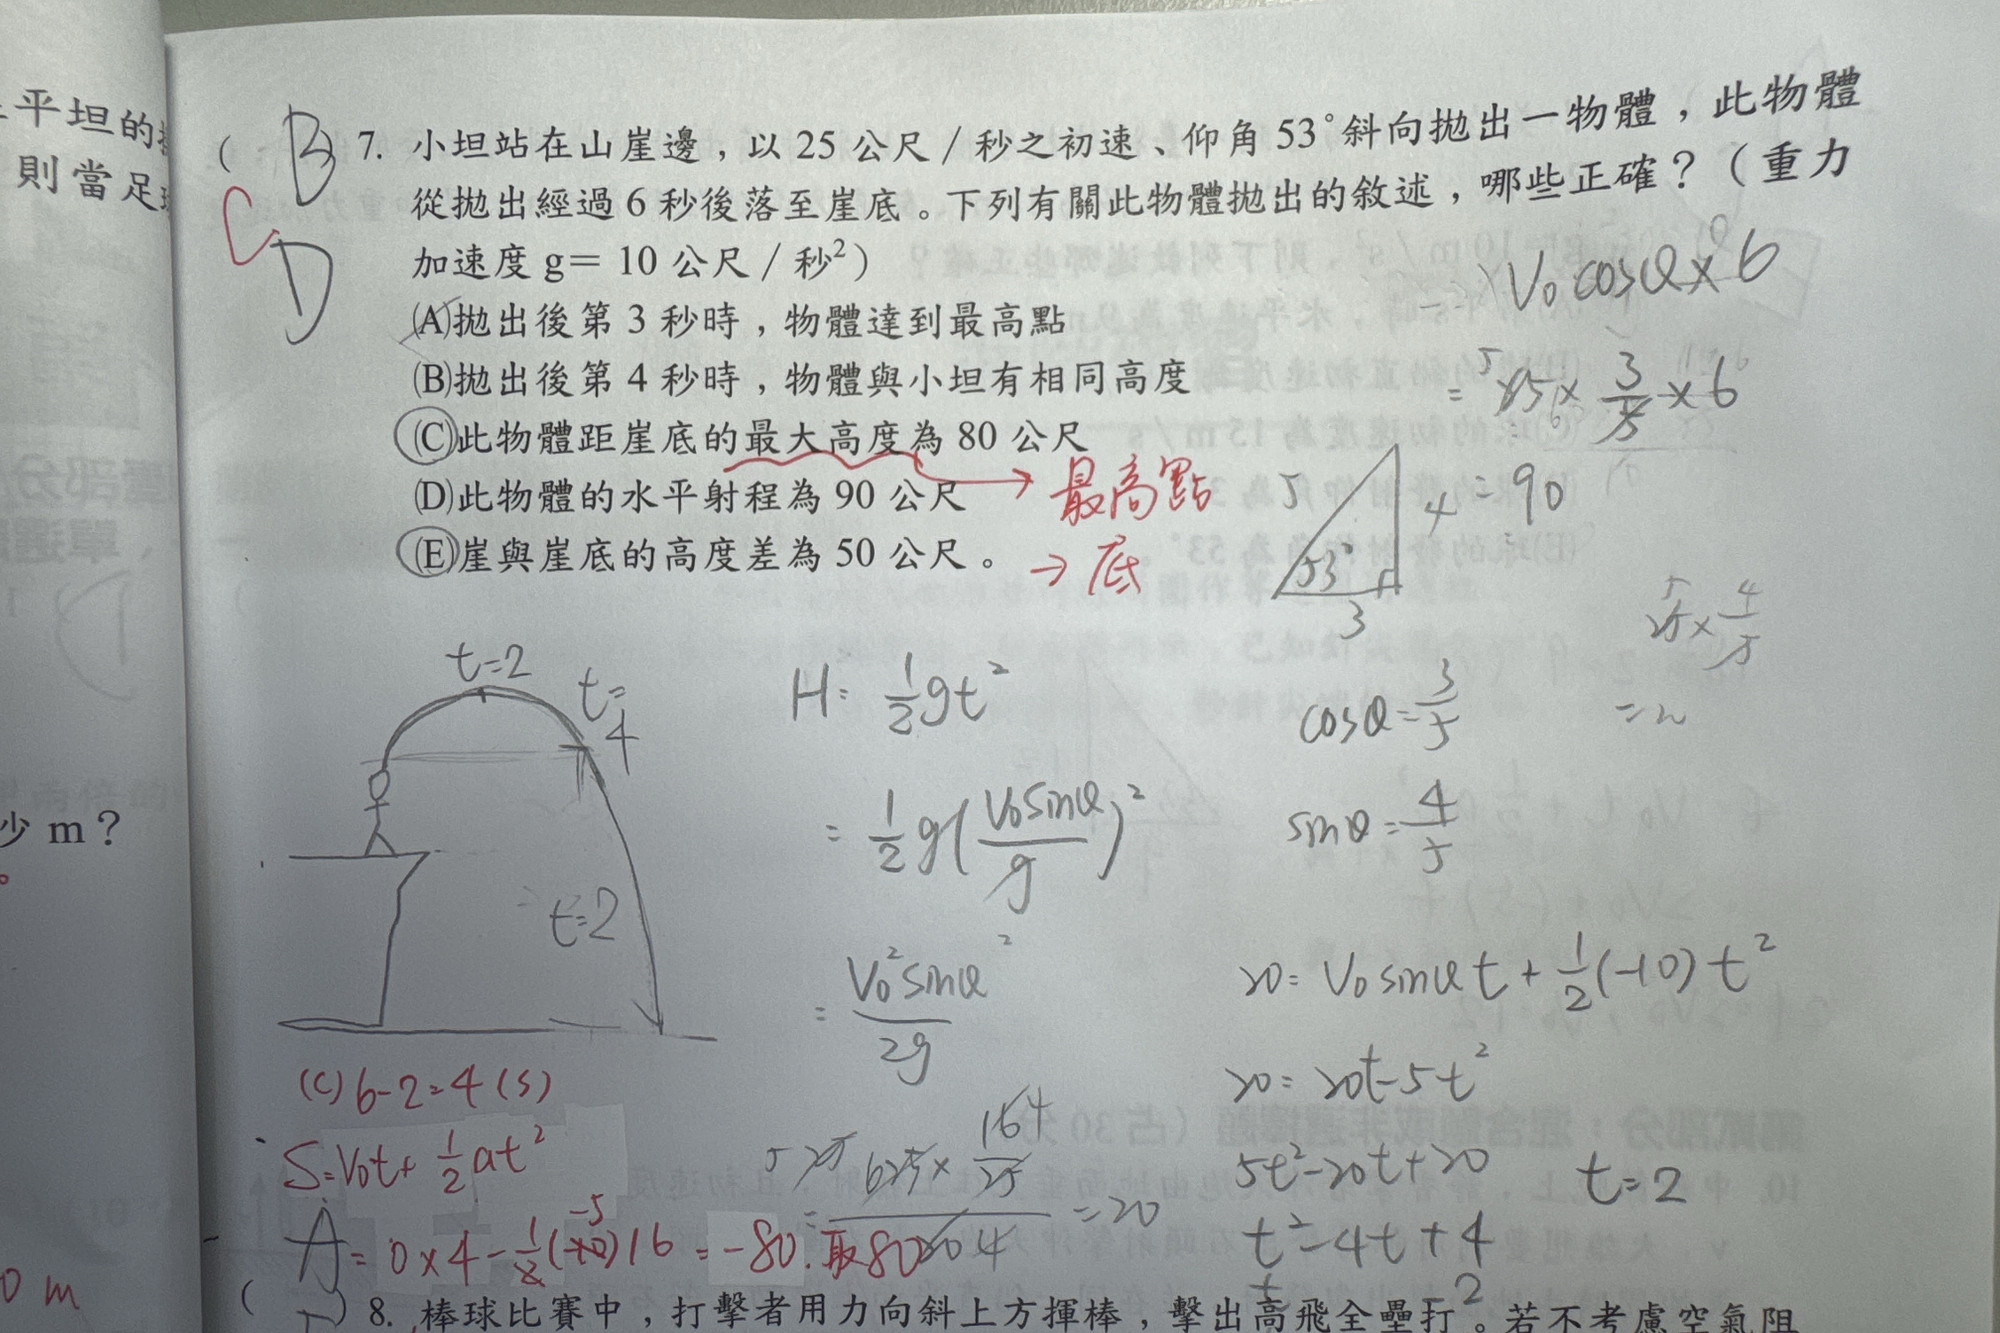 平坦的
則當足
少 m？
0 m
( B C D ) 7. 小坦站在山崖邊，以 25 公尺／秒之初速、仰角 53°斜向拋出一物體，此物體
從拋出經過 6 秒後落至崖底。下列有關此物體拋出的敘述，哪些正確？（重力
加速度 g＝ 10 公尺／秒²）
(A)拋出後第 3 秒時，物體達到最高點
(B)拋出後第 4 秒時，物體與小坦有相同高度
(C)此物體距崖底的最大高度為 80 公尺
→ 最高點
(D)此物體的水平射程為 90 公尺
(E)崖與崖底的高度差為 50 公尺。
→ 底
V₀ cosθ×6
= 25 × 3/5 × 6
= 90
5
4
53°
3
25 × 4/5
cosθ = 3/5
sinθ = 4/5
t=2
t=4
t=2
H = 1/2 gt²
= 1/2 g(V₀sinθ/g)²
= V₀²sinθ²/2g
= 625× 16/25 / 20 = 20
20 = V₀ sinθ t + 1/2(-10)t²
20 = 20t-5t²
5t²-20t+20
t²-4t+4
t=2
t -2
(C) 6-2=4 (s)
S=V₀t+ 1/2 at²
= 0×4 - 1/2(-10)16 = -80. 取80
( ) 8. 棒球比賽中，打擊者用力向斜上方揮棒，擊出高飛全壘打。若不考慮空氣阻